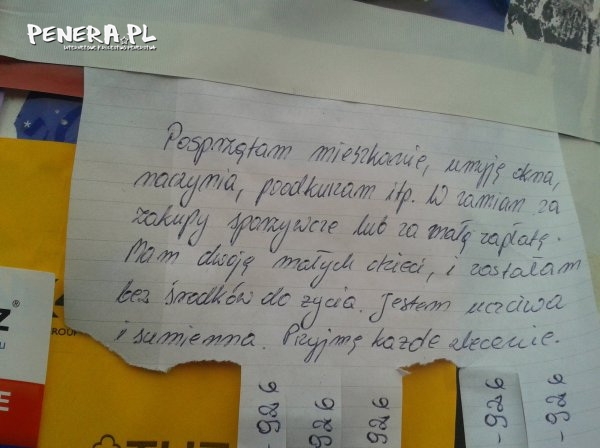 PENERA.PL
INTERNETOWE KRÓLESTWO PENERSTWA
Posprzątam mieszkanie, umyję okna,
naczynia, poodkurzam itp. W zamian za
zakupy spożywcze lub za małą zapłatę.
Mam dwoję małych dzieci, i zostałam
bez środków do życia. Jestem uczciwa
i sumienna. Przyjmę każde zlecenie.
Z®
GROUP
E
-926
926
926
-926
-926